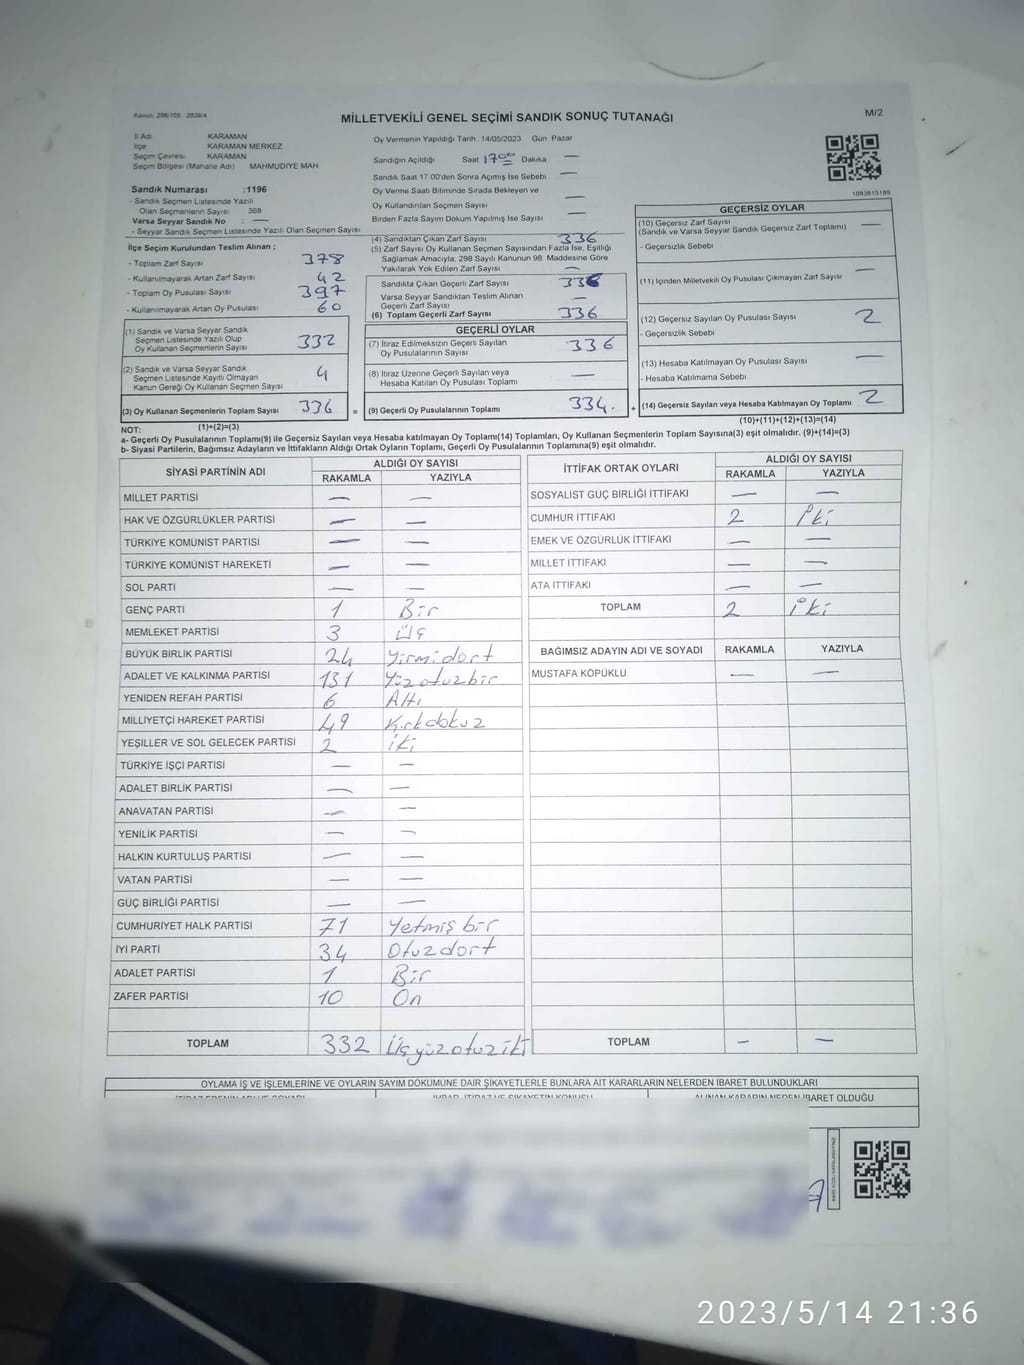 Kanun: 298/105 2839/4
MİLLETVEKİLİ GENEL SEÇİMİ SANDIK SONUÇ TUTANAĞI
M/2
İl Adı KARAMAN
İlçe KARAMAN MERKEZ
Seçim Çevresi KARAMAN
Seçim Bölgesi (Mahalle Adı) MAHMUDİYE MAH.
Sandık Numarası :1196
- Sandık Seçmen Listesinde Yazılı
Olan Seçmenlerin Sayısı 368
Varsa Seyyar Sandık No : —
- Seyyar Sandık Seçmen Listesinde Yazılı Olan Seçmen Sayısı
Oy Vermenin Yapıldığı Tarih 14/05/2023 Gün Pazar
Sandığın Açıldığı Saat 17:00 Dakika —
Sandık Saat 17:00'den Sonra Açılmış İse Sebebi —
Oy Verme Saati Bitiminde Sırada Bekleyen ve
Oy Kullandırılan Seçmen Sayısı —
Birden Fazla Sayım Döküm Yapılmış İse Sayısı —
1083615189
İlçe Seçim Kurulundan Teslim Alınan ;
- Toplam Zarf Sayısı 378
- Kullanılmayarak Artan Zarf Sayısı 42
- Toplam Oy Pusulası Sayısı 397
- Kullanılmayarak Artan Oy Pusulası 60
(1) Sandık ve Varsa Seyyar Sandık
Seçmen Listesinde Yazılı Olup
Oy Kullanan Seçmenlerin Sayısı 332
(2) Sandık ve Varsa Seyyar Sandık
Seçmen Listesinde Kayıtlı Olmayan
Kanun Gereği Oy Kullanan Seçmen Sayısı 4
(3) Oy Kullanan Seçmenlerin Toplam Sayısı 336 =
(4) Sandıktan Çıkan Zarf Sayısı 336
(5) Zarf Sayısı Oy Kullanan Seçmen Sayısından Fazla İse, Eşitliği
Sağlamak Amacıyla, 298 Sayılı Kanunun 98. Maddesine Göre
Yakılarak Yok Edilen Zarf Sayısı —
Sandıkta Çıkan Geçerli Zarf Sayısı 336
Varsa Seyyar Sandıktan Teslim Alınan
Geçerli Zarf Sayısı —
(6) Toplam Geçerli Zarf Sayısı 336
GEÇERLİ OYLAR
(7) İtiraz Edilmeksizin Geçerli Sayılan
Oy Pusulalarının Sayısı 336
(8) İtiraz Üzerine Geçerli Sayılan veya
Hesaba Katılan Oy Pusulası Toplamı —
(9) Geçerli Oy Pusulalarının Toplamı 334. +
GEÇERSİZ OYLAR
(10) Geçersiz Zarf Sayısı
(Sandık ve Varsa Seyyar Sandık Geçersiz Zarf Toplamı) —
- Geçersizlik Sebebi
(11) İçinden Milletvekili Oy Pusulası Çıkmayan Zarf Sayısı —
(12) Geçersiz Sayılan Oy Pusulası Sayısı 2
- Geçersizlik Sebebi
(13) Hesaba Katılmayan Oy Pusulası Sayısı —
- Hesaba Katılmama Sebebi
(14) Geçersiz Sayılan veya Hesaba Katılmayan Oy Toplamı 2
NOT: (1)+(2)=(3)
(10)+(11)+(12)+(13)=(14)
a- Geçerli Oy Pusulalarının Toplamı(9) ile Geçersiz Sayılan veya Hesaba katılmayan Oy Toplamı(14) Toplamları, Oy Kullanan Seçmenlerin Toplam Sayısına(3) eşit olmalıdır. (9)+(14)=(3)
b- Siyasi Partilerin, Bağımsız Adayların ve İttifakların Aldığı Ortak Oyların Toplamı, Geçerli Oy Pusulalarının Toplamına(9) eşit olmalıdır.
SİYASİ PARTİNİN ADI
ALDIĞI OY SAYISI
RAKAMLA YAZIYLA
MİLLET PARTİSİ — —
HAK VE ÖZGÜRLÜKLER PARTİSİ — —
TÜRKİYE KOMÜNİST PARTİSİ — —
TÜRKİYE KOMÜNİST HAREKETİ — —
SOL PARTİ — —
GENÇ PARTİ 1 Bir
MEMLEKET PARTİSİ 3 Üç
BÜYÜK BİRLİK PARTİSİ 24 Yirmidort
ADALET VE KALKINMA PARTİSİ 131 Yüzotuzbir
YENİDEN REFAH PARTİSİ 6 Altı
MİLLİYETÇİ HAREKET PARTİSİ 49 Kırkdokuz
YEŞİLLER VE SOL GELECEK PARTİSİ 2 iki
TÜRKİYE İŞÇİ PARTİSİ — —
ADALET BİRLİK PARTİSİ — —
ANAVATAN PARTİSİ — —
YENİLİK PARTİSİ — —
HALKIN KURTULUŞ PARTİSİ — —
VATAN PARTİSİ — —
GÜÇ BİRLİĞİ PARTİSİ — —
CUMHURİYET HALK PARTİSİ 71 Yetmiş bir
İYİ PARTİ 34 Otuzdort
ADALET PARTİSİ 1 Bir
ZAFER PARTİSİ 10 On
TOPLAM 332 Üçyüzotuziki
İTTİFAK ORTAK OYLARI
ALDIĞI OY SAYISI
RAKAMLA YAZIYLA
SOSYALİST GÜÇ BİRLİĞİ İTTİFAKI — —
CUMHUR İTTİFAKI 2 İki
EMEK VE ÖZGÜRLÜK İTTİFAKI — —
MİLLET İTTİFAKI — —
ATA İTTİFAKI — —
TOPLAM 2 iki
BAĞIMSIZ ADAYIN ADI VE SOYADI RAKAMLA YAZIYLA
MUSTAFA KÖPÜKLÜ — —
TOPLAM — —
OYLAMA İŞ VE İŞLEMLERİNE VE OYLARIN SAYIM DÖKÜMÜNE DAİR ŞİKAYETLERLE BUNLARA AİT KARARLARIN NELERDEN İBARET BULUNDUKLARI
ALINAN KARARIN NEDEN İBARET OLDUĞU
2023/5/14 21:36